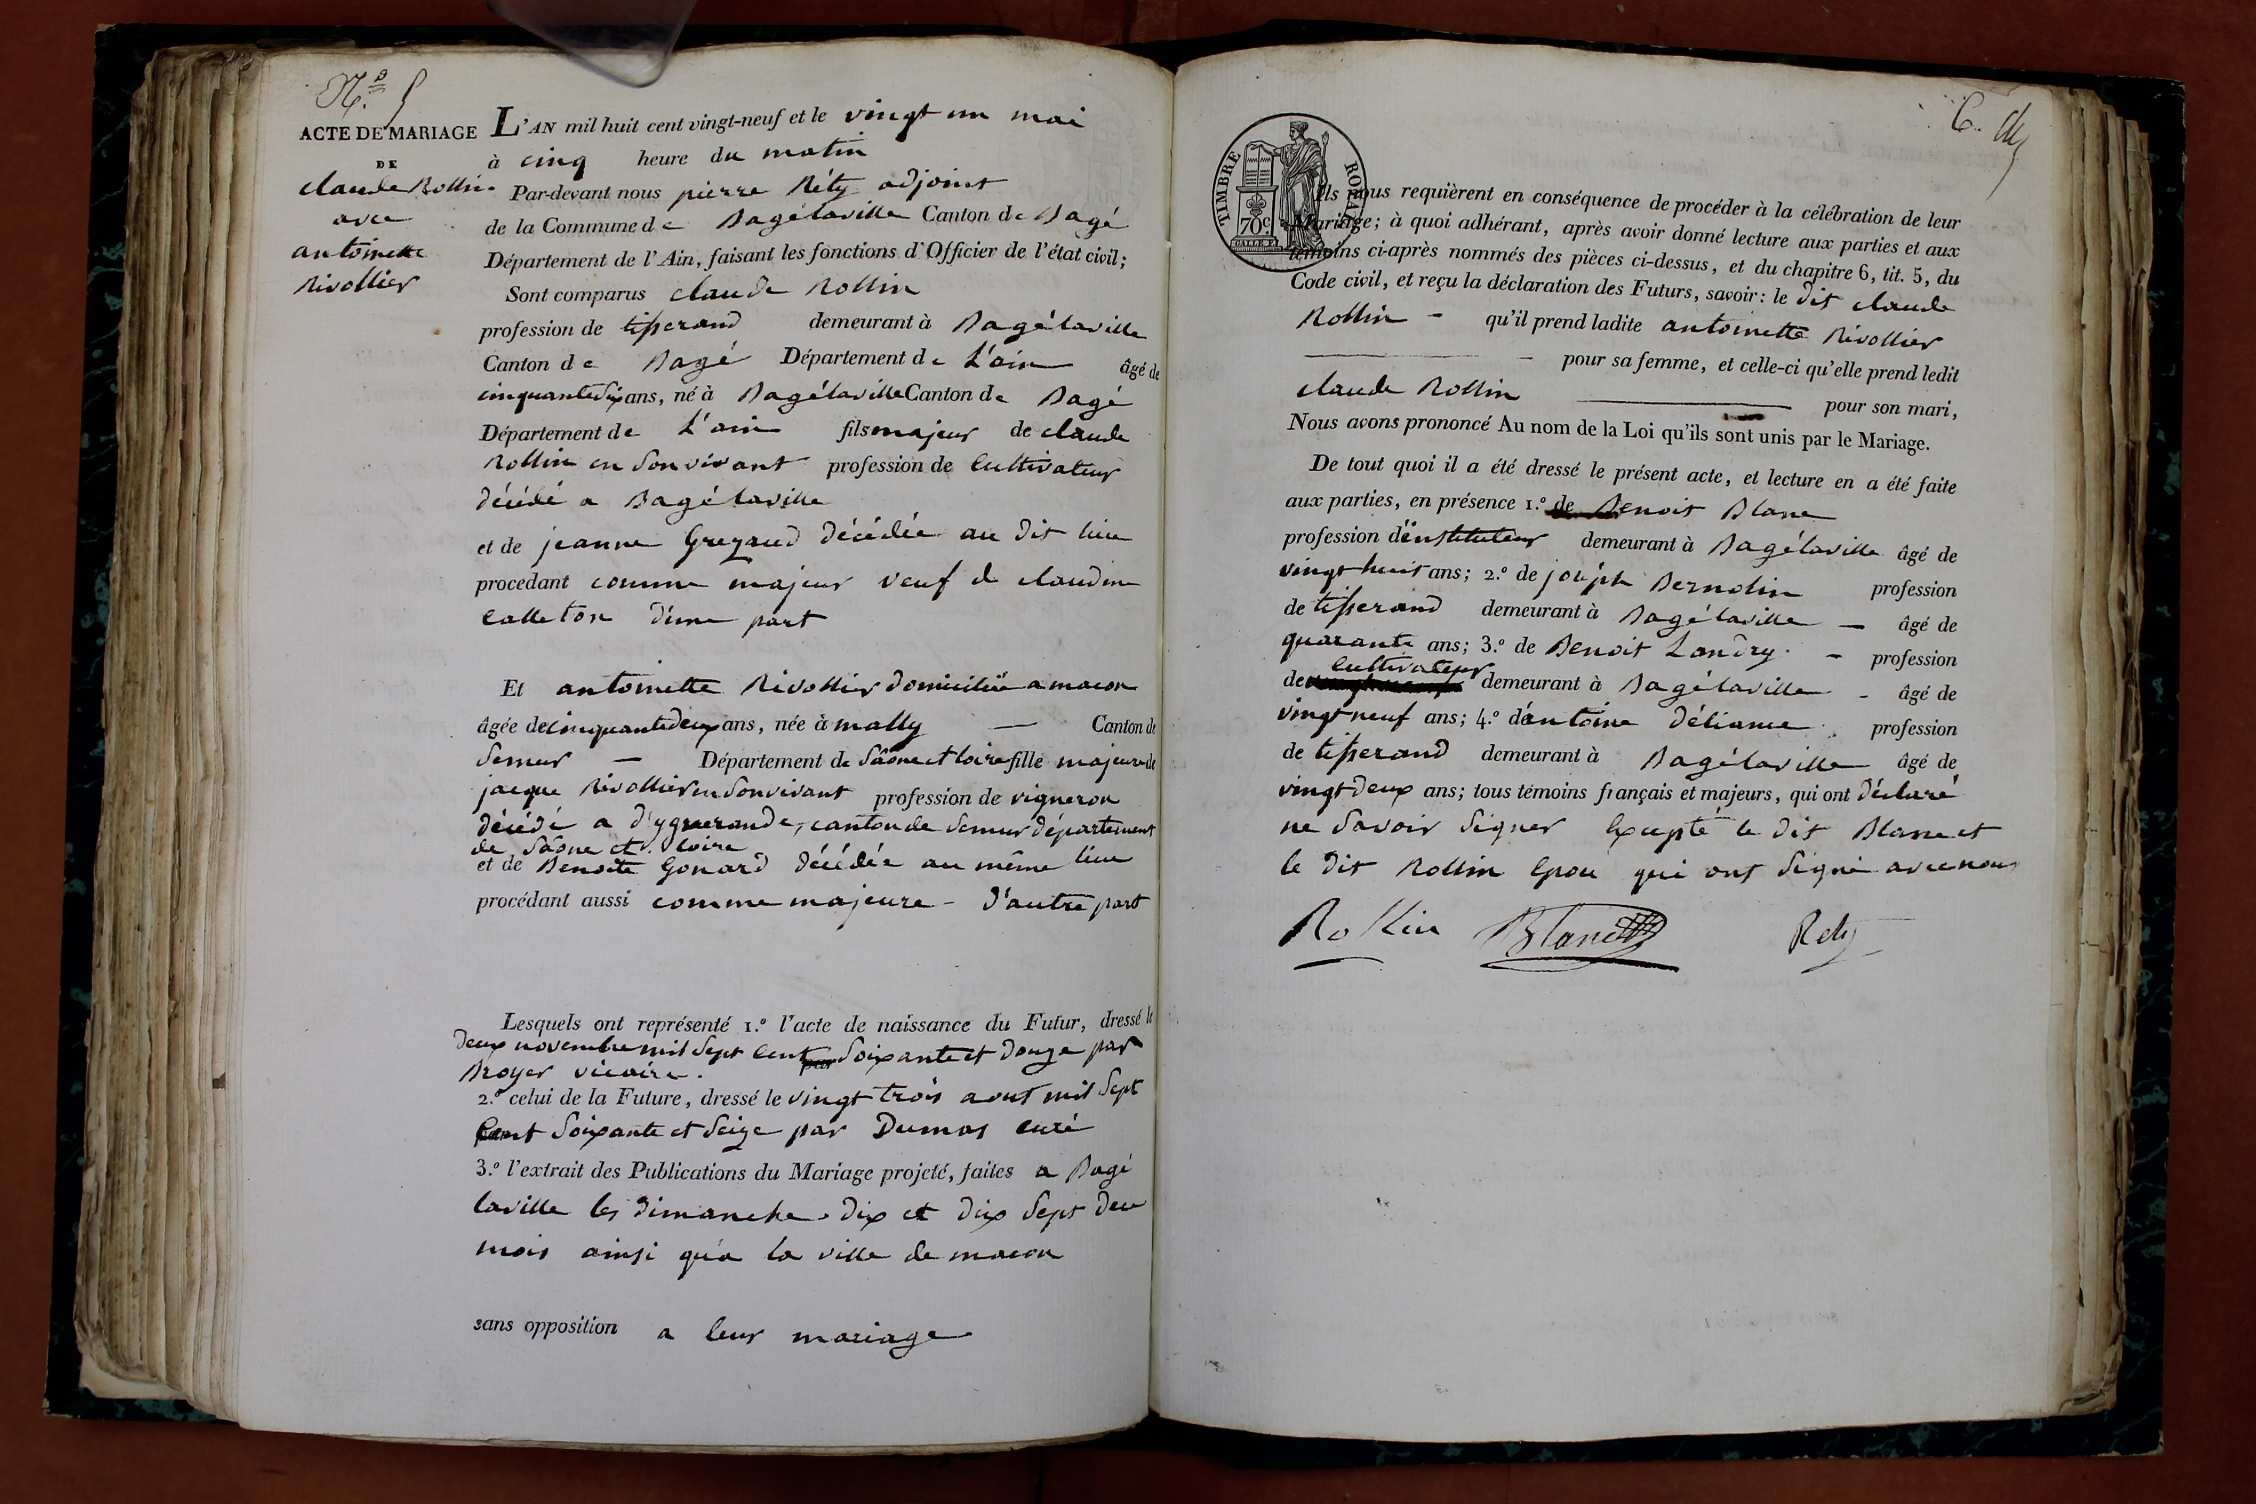 N.º 5
ACTE DE MARIAGE
DE
claude Rollin
avec
antoinette
Rivollier
L'AN mil huit cent vingt-neuf et le vingt un mai
à cinq heure du matin
Par-devant nous pierre Réty adjoint
de la Commune de Bagélaville Canton de Bagé
Département de l'Ain, faisant les fonctions d'Officier de l'état civil;
Sont comparus claude Rollin
profession de tisserand demeurant à Bagélaville
Canton de Bagé Département de L'ain âgé de
cinquantesix ans, né à Bagélaville Canton de Bagé
Département de L'ain fils majeur de claude
Rollin en son vivant profession de cultivateur
décédé a Bagélaville
et de jeanne Greyaud décédée au dit lieu
procedant comme majeur veuf de claudine
calleton d'une part
Et antoinette Rivollier domiciliée a macon
âgée de cinquantedeux ans, née à mally — Canton de
Semur — Département de Saône et loire fille majeure de
jacque Rivollier en son vivant profession de vigneron
décédé a d'yguerande, canton de Semur département
de Saône et loire
et de Benoite Gonard décédée au même lieu
procédant aussi comme majeure - d'autre part
Lesquels ont représenté 1.º l'acte de naissance du Futur, dressé le
deux novembre mil sept cent par soixante et douze par
Broyer vicaire.
2.º celui de la Future, dressé le vingt trois aout mil sept
cent soixante et seize par Dumas curé
3.º l'extrait des Publications du Mariage projeté, faites a Bagé
laville les dimanche dix et dix sept du
mois ainsi qu'a la ville de macon
sans opposition a leur mariage
TIMBRE ROYAL
70c
Ils nous requièrent en conséquence de procéder à la célébration de leur
Mariage; à quoi adhérant, après avoir donné lecture aux parties et aux
témoins ci-après nommés des pièces ci-dessus, et du chapitre 6, tit. 5, du
Code civil, et reçu la déclaration des Futurs, savoir: le dit claude
Rollin - qu'il prend ladite antoinette Rivollier
— pour sa femme, et celle-ci qu'elle prend ledit
claude Rollin — pour son mari,
Nous avons prononcé Au nom de la Loi qu'ils sont unis par le Mariage.
De tout quoi il a été dressé le présent acte, et lecture en a été faite
aux parties, en présence 1.º de Benoit Blanc
profession d'instituteur demeurant à Bagélaville âgé de
vingt huit ans; 2.º de joseph Bernolin profession
de tisserand demeurant à Bagélaville — âgé de
quarante ans; 3.º de Benoit Landry - profession
cultivateur
de demeurant à Bagélaville - âgé de
vingt neuf ans; 4.º d'antoine Déliance profession
de tisserand demeurant à Bagélaville âgé de
vingt deux ans; tous témoins français et majeurs, qui ont déclaré
ne savoir signer excepté le dit Blanc et
le dit Rollin epou qui ont signé avec nous
Rollin Blanc Rety